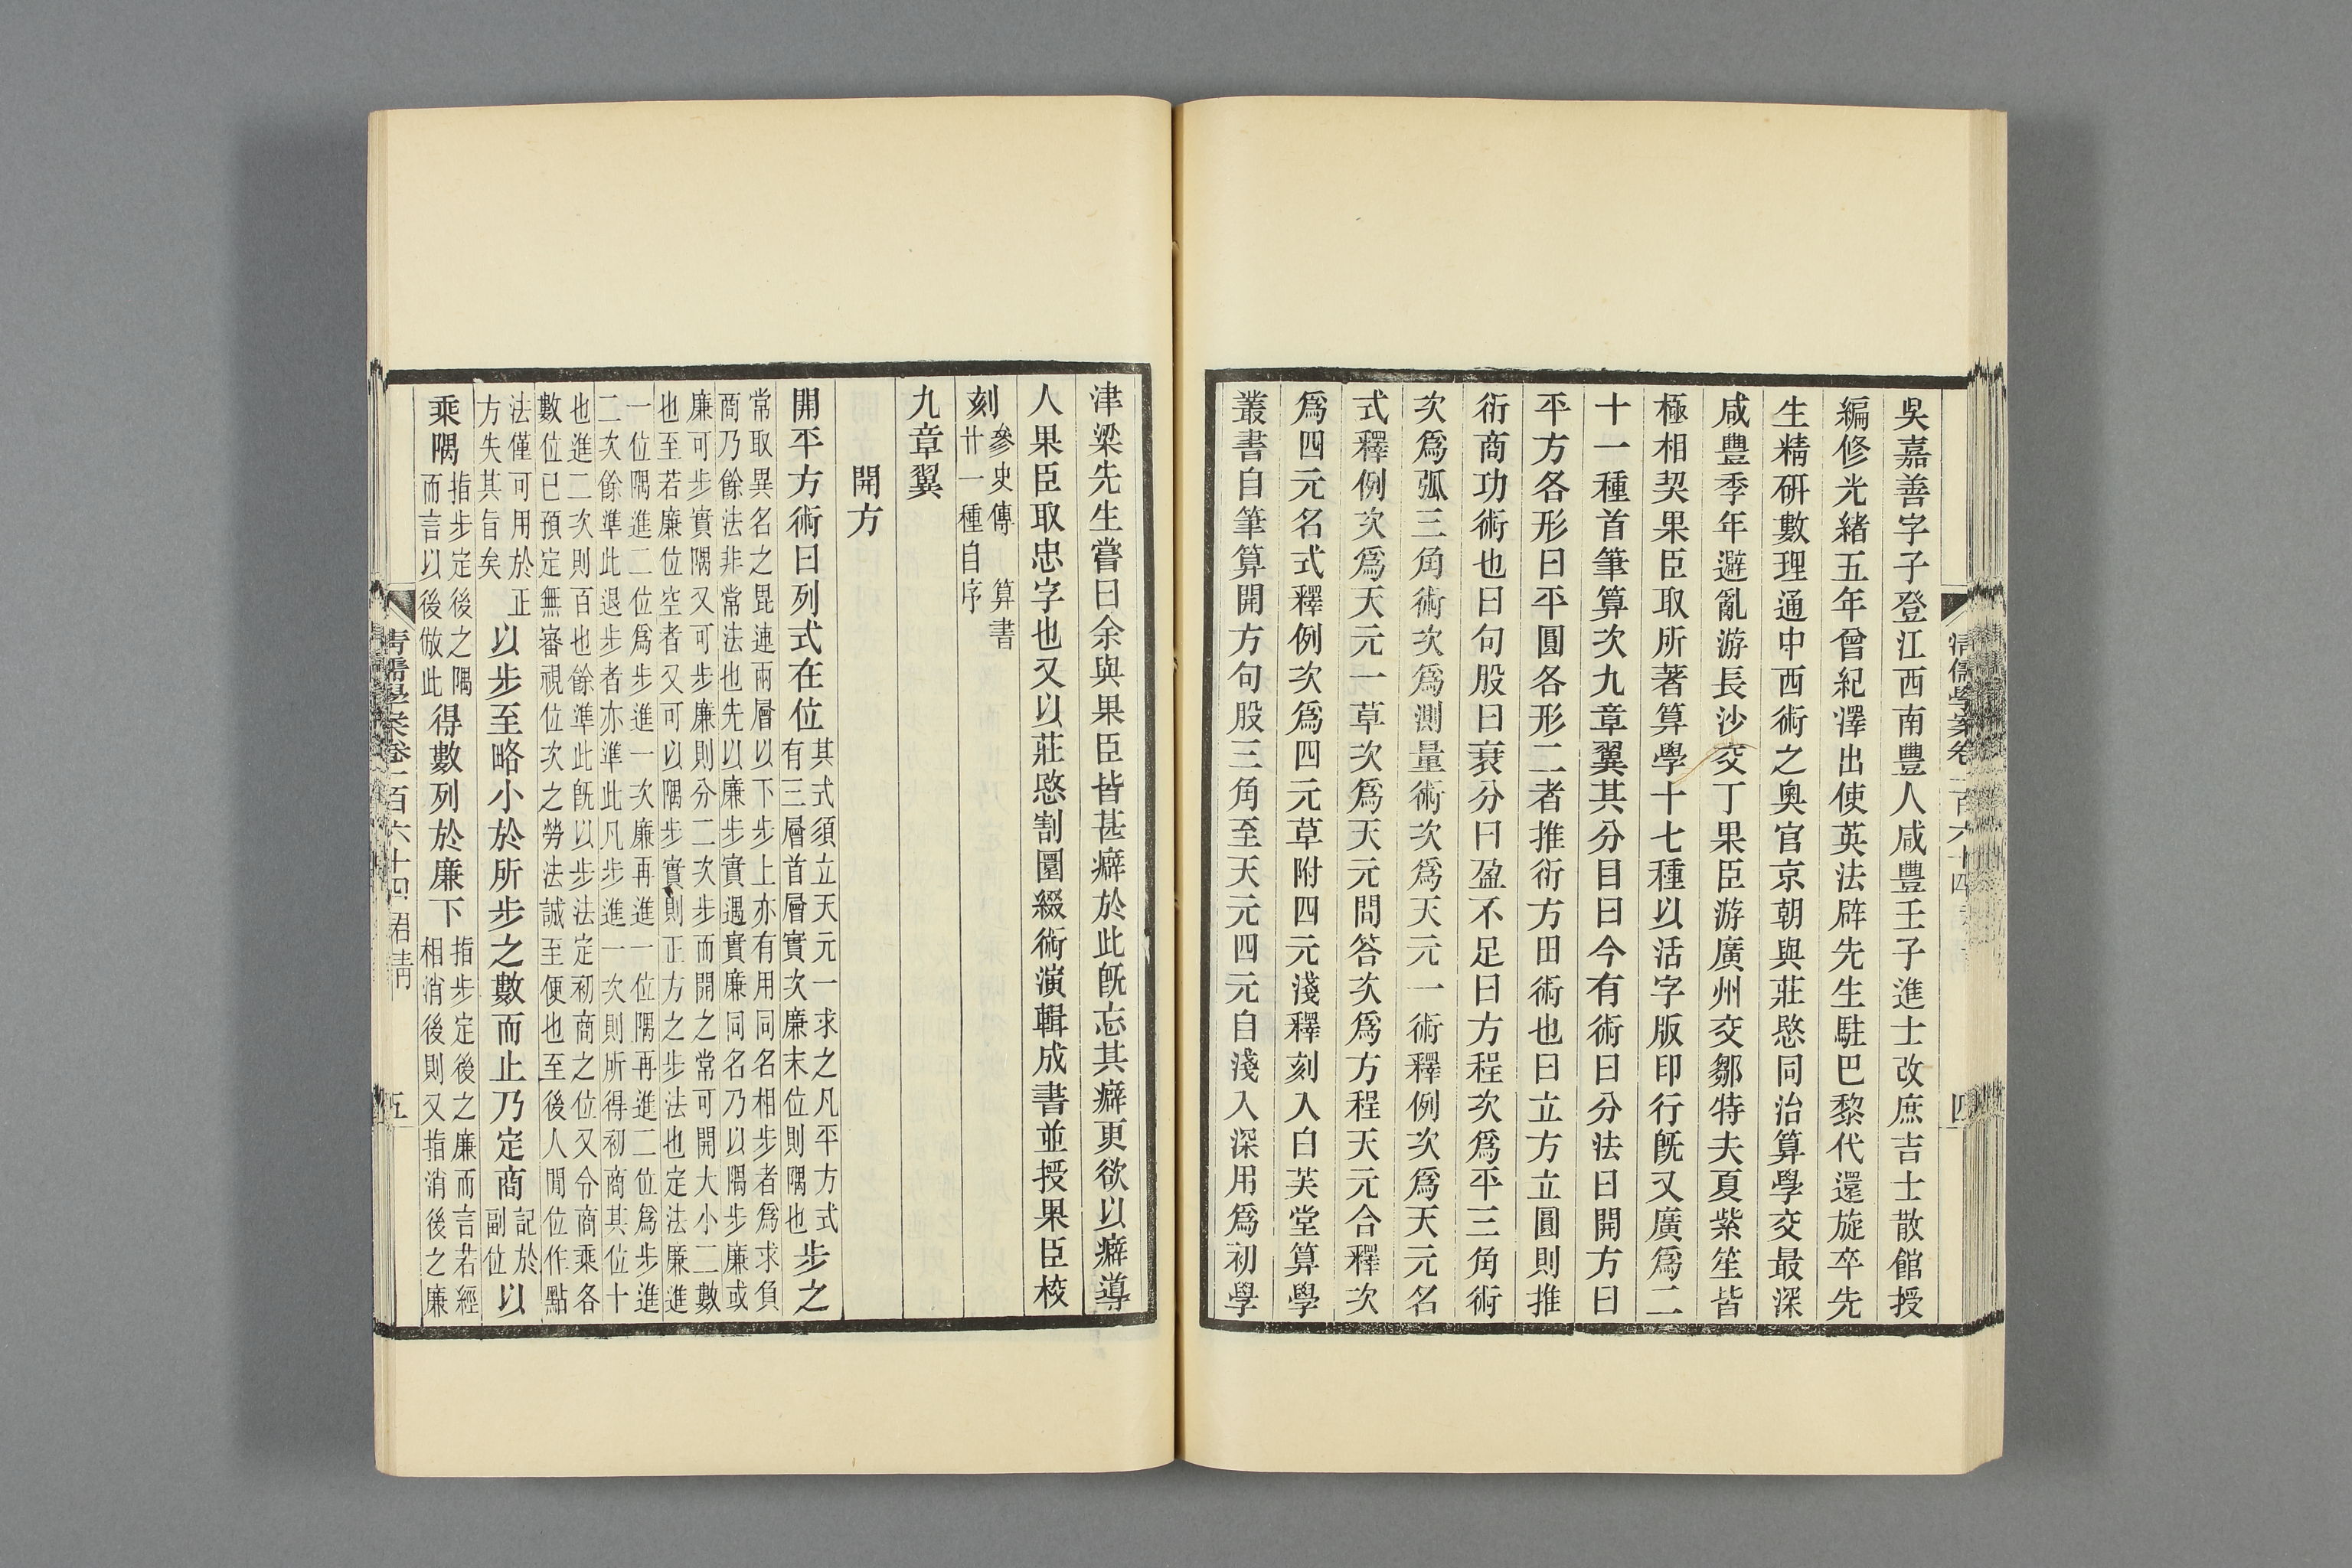 吳嘉善字子登江西南豐人咸豐壬子進士改庶吉士散館授
編修光緒五年曾紀澤出使英法辟先生駐巴黎代還旋卒先
生精硏數理通中西術之奧官京朝與莊愍同治算學交最深
咸豐季年避亂游長沙交丁果臣游廣州交鄒特夫夏紫笙皆
極相契果臣取所著算學十七種以活字版印行旣又廣爲二
十一種首筆算次九章翼其分目曰今有術曰分法曰開方曰
平方各形曰平圓各形二者推衍方田術也曰立方立圓則推
衍商功術也曰句股曰衰分曰盈不足曰方程次爲平三角術
次爲弧三角術次爲測量術次爲天元一術釋例次爲天元名
式釋例次爲天元一草次爲天元問答次爲方程天元合釋次
爲四元名式釋例次爲四元草附四元淺釋刻入白芙堂算學
叢書自筆算開方句股三角至天元四元自淺入深用爲初學
清儒學案卷一百六十四
四
津梁先生嘗曰余與果臣皆甚癖於此旣忘其癖更欲以癖導
人果臣取忠字也又以莊愍割圜綴術演輯成書並授果臣校
刻參史傳 算書
廿一種自序
九章翼
開方
開平方術曰列式在位其式須立天元一求之凡平方式
有三層首層實次廉末位則隅也步之
常取異名之毘連兩層以下步上亦有用同名相步者爲求負
商乃餘法非常法也先以廉步實遇實廉同名乃以隅步廉或
廉可步實隅又可步廉則分二次步而開之常可開大小二數
也至若廉位空者又可以隅步實則正方之步法也定法廉進
一位隅進二位爲步進一次廉再進一位隅再進二位爲步進
二次餘準此退步者亦準此凡步進一次則所得初商其位十
也進二次則百也餘準此旣以步法定初商之位又令商乘各
數位已預定無審視位次之勞法誠至便也至後人閒位作點
法僅可用於正
方失其旨矣以步至略小於所步之數而止乃定商記於
副位以
乘隅指步定後之隅
而言以後倣此得數列於廉下指步定後之廉而言若經
相消後則又指消後之廉
清儒學案卷一百六十四 君靑
五